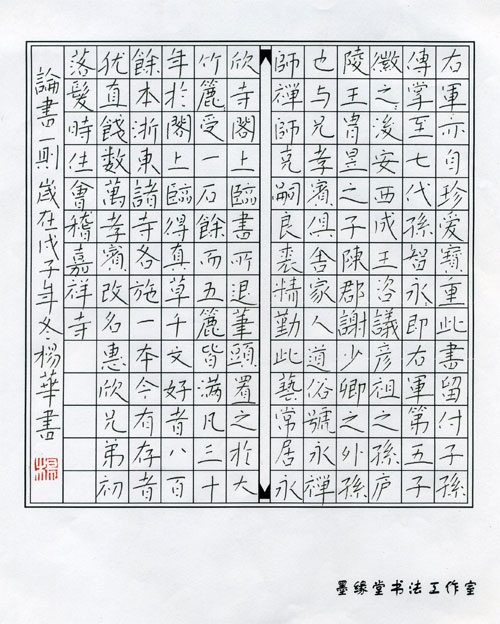 右軍亦自珍愛寶重此書留付子孫
傳掌至七代孫智永即右軍第五子
徽之後安西成王咨議彦祖之孫庐
陵王冑昱之子陳郡謝少卿之外孫
也与兄孝賓俱舍家人道俗號永禪
師禪師克嗣良裘精勤此藝常居永
欣寺閣上臨書所退筆頭置之於大
竹簏受一石餘而五簏皆滿凡三十
年於閣上臨得真草千文好者八百
餘本浙東諸寺各施一本今有存者
犹直餞數萬孝賓改名惠欣兄弟初
落髮時住會稽嘉祥寺
論書一則 歲在戊子年冬楊華書
墨缘堂书法工作室